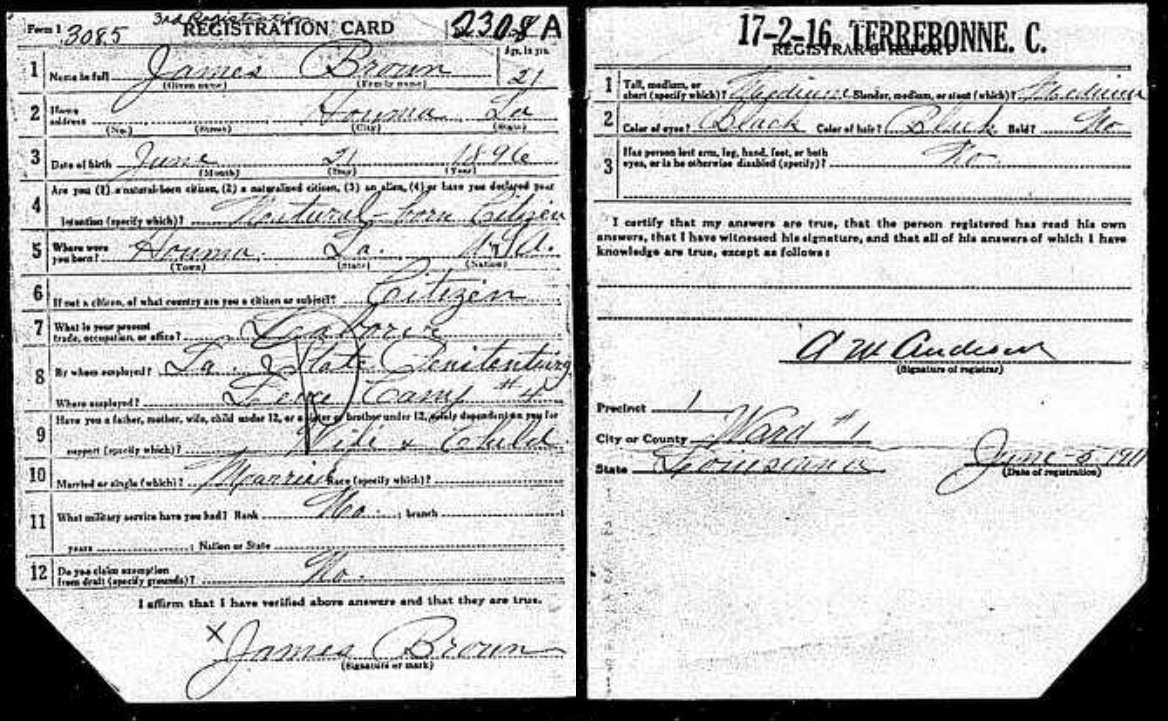 3rd Registration
Form 1 3085 REGISTRATION CARD 2308 A
Age, in yrs.
1 Name in full James Brown 21
(Given name) (Family name)
2 Home address Houma La
(No.) (Street) (City) (State)
3 Date of birth June 21 1896
(Month) (Day) (Year)
Are you (1) a natural-born citizen, (2) a naturalized citizen, (3) an alien, (4) or have you declared your
4 intention (specify which)? Natural born Citizen
5 Where were you born? Houma La. U.S.A.
(Town) (State) (Nation)
6 If not a citizen, of what country are you a citizen or subject? Citizen
7 What is your present trade, occupation, or office? Laborer
8 By whom employed? La. State Penitentiary
Where employed? Camp #4
Have you a father, mother, wife, child under 12, or a sister or brother under 12, solely dependent on you for
9 support (specify which)? Wife & Child
10 Married or single (which)? Married Race (specify which)?
11 What military service have you had? Rank No. ; branch ;
years ; Nation or State
12 Do you claim exemption from draft (specify grounds)? No.
I affirm that I have verified above answers and that they are true.
X James Brown
(Signature or mark)
17-2-16 TERREBONNE. C.
REGISTRAR'S REPORT
1 Tall, medium, or short (specify which)? Medium Slender, medium, or stout (which)? Medium
2 Color of eyes? Black Color of hair? Black Bald? No
3 Has person lost arm, leg, hand, foot, or both eyes, or is he otherwise disabled (specify)? No
I certify that my answers are true, that the person registered has read his own
answers, that I have witnessed his signature, and that all of his answers of which I have
knowledge are true, except as follows:
A M Anderson
(Signature of registrar)
Precinct 1
City or County Ward #1
State Louisiana June-5-191
(Date of registration)